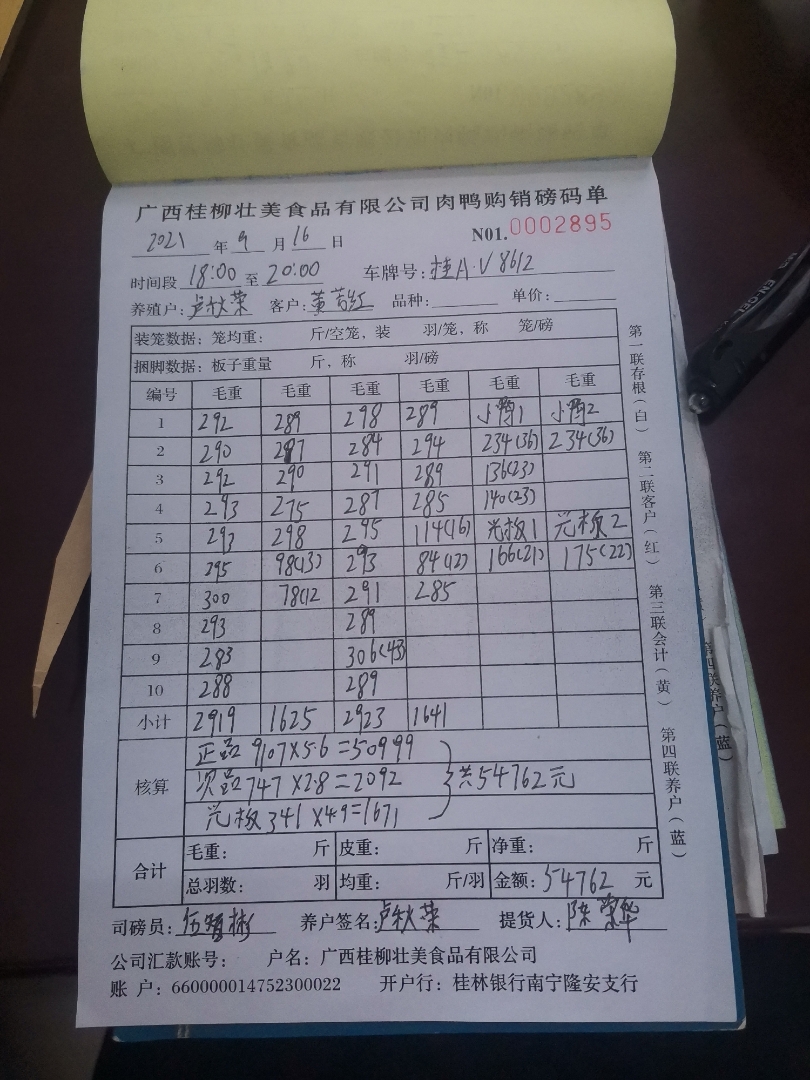 广西桂柳壮美食品有限公司肉鸭购销磅码单
2021年9月16日 N01.0002895
时间段18:00至20:00 车牌号:桂A·V8612
养殖户:卢秋荣 客户:黄苦红 品种: 单价:
装笼数据:笼均重: 斤/空笼,装 羽/笼,称 笼/磅
捆脚数据:板子重量 斤,称 羽/磅
编号 毛重 毛重 毛重 毛重 毛重 毛重
1 292 289 298 289 小鸭1 小鸭2
2 290 287 284 294 234(36) 234(36)
3 292 290 291 289 136(23)
4 293 275 287 285 140(23)
5 293 298 295 114(16) 光板1 光板2
6 295 98(13) 293 84(12) 166(21) 175(22)
7 300 78(12 291 285
8 293 289
9 283 306(43)
10 288 289
小计 2919 1625 2923 1641
核算
正品 9107×5.6=50999
次品747×2.8=2092 共54762元
光板341×4.9=1671
合计
毛重: 斤 皮重: 斤 净重: 斤
总羽数: 羽 均重: 斤/羽 金额:54762元
司磅员:伍智彬 养户签名:卢秋荣 提货人:陈荣华
公司汇款账号: 户名:广西桂柳壮美食品有限公司
账 户:660000014752300022 开户行:桂林银行南宁隆安支行
第一联存根(白) 第二联客户(红) 第三联会计(黄) 第四联养户(蓝)